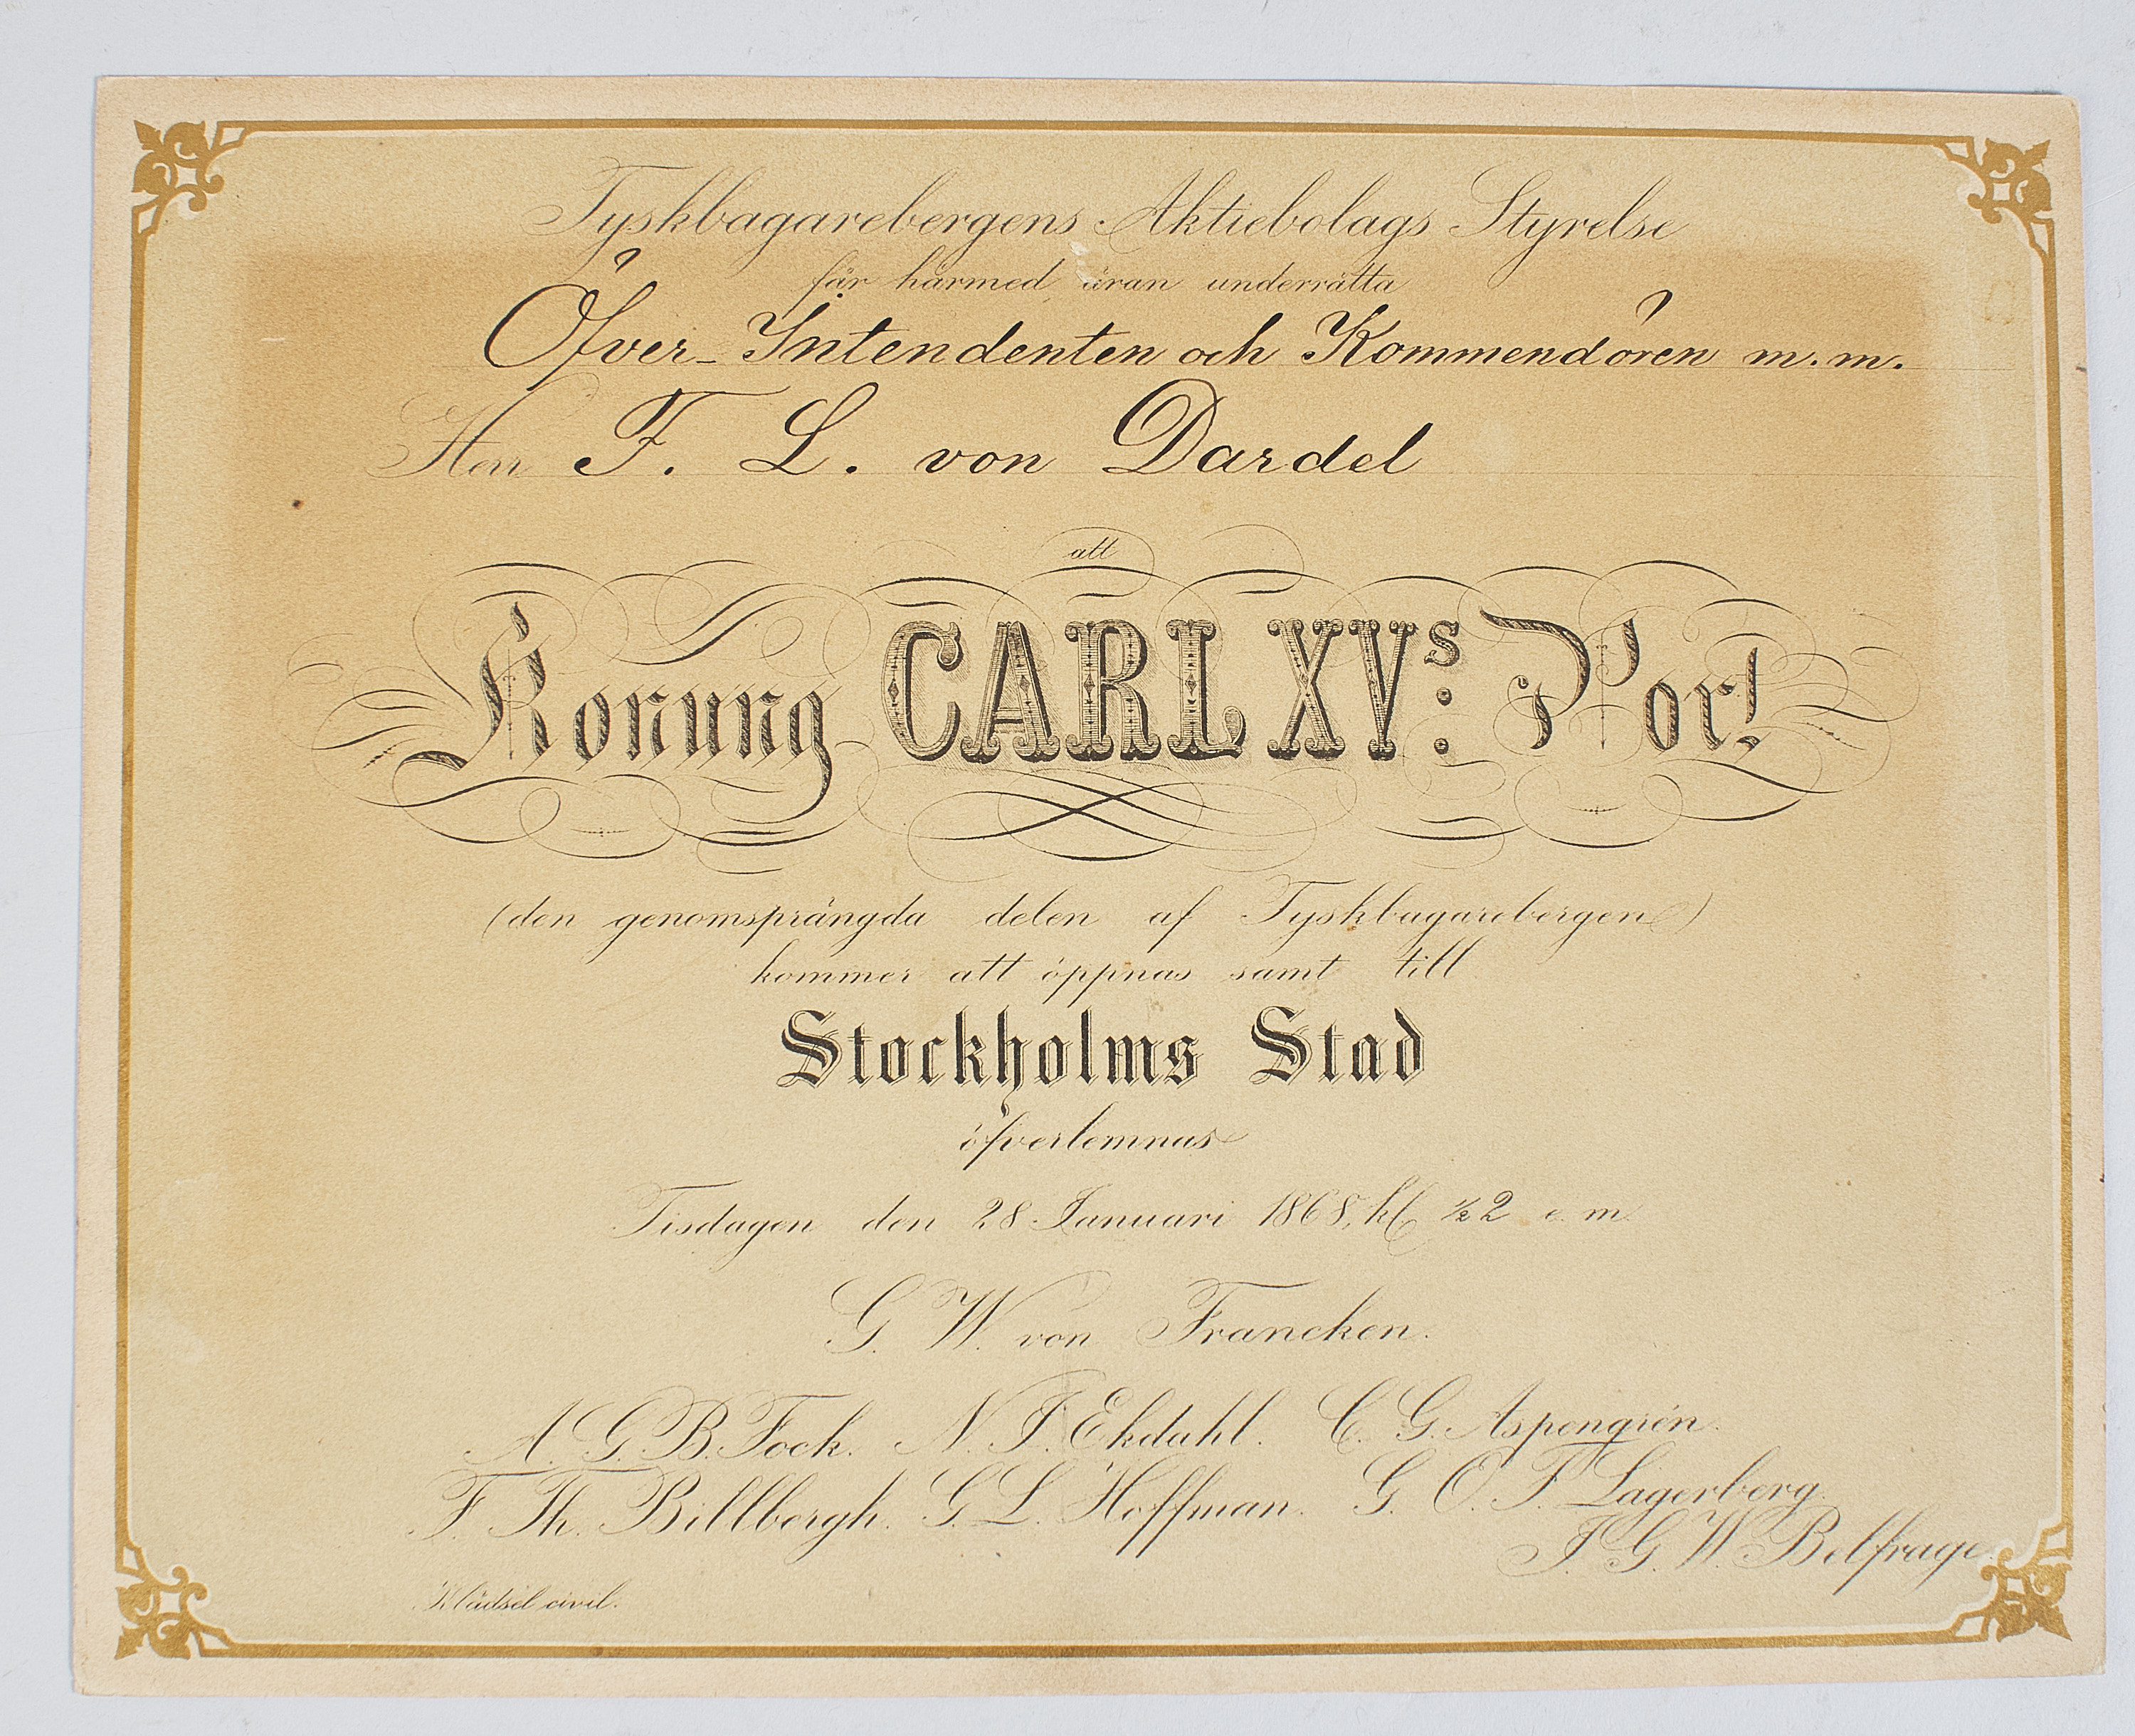 Tyskbagarebergens Aktiebolags Styrelse
får härmed äran underrätta
Öfver-Intendenten och Kommendören m.m.
Herr F. L. von Dardel
att
Konung CARL XVs: Port
(den genomsprängda delen af Tyskbagarebergen)
kommer att öppnas samt till
Stockholms Stad
öfverlemnas
Tisdagen den 28 Januari 1868, kl. ½ 2 e. m.
G. W. von Francken.
A. G. B. Fock. N. J. Ekdahl. C. G. Aspengrén.
F. Th. Billbergh. G. L. Hoffman. G. O. F. Lagerberg.
J. G. W. Belfrage.
Klädsel civil.